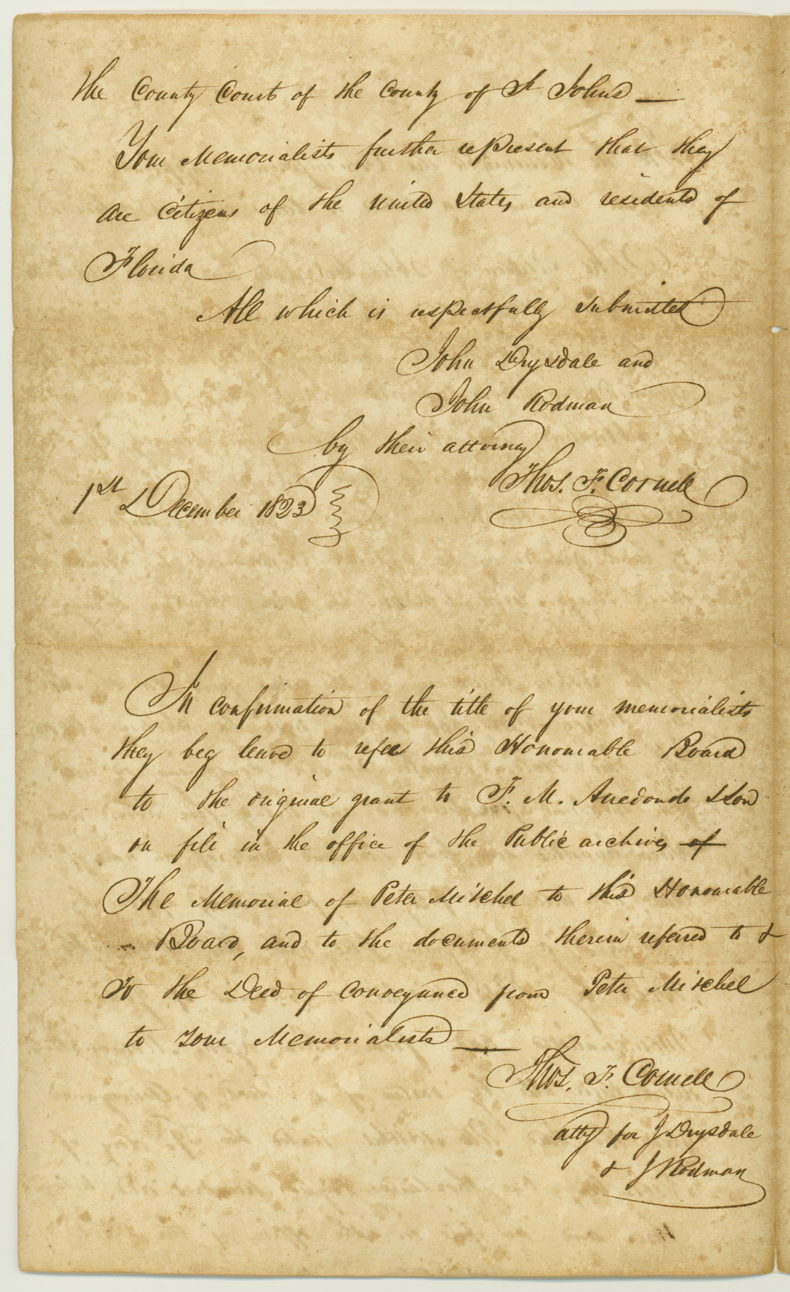 the County Court of the County of St Johns —
Your Memorialists further represent that they
are Citizens of the United States, and residents of
Florida
All which is respectfully submitted
John Drysdale and
John Rodman
by their attorney
Thos. F. Cornell
1st December 1823
In confirmation of the title of your memorialists
they beg leave to refer this Honourable Board
to the original grant to F. M. Arredondo & Son
on file in the office of the Public archives of
The Memorial of Peter Mitchel to this Honourable
Board, and to the documents therein referred to &
To the Deed of Conveyance from Peter Mitchel
to your Memorialists —
Thos. F. Cornell
atty for J Drysdale
& J Rodman